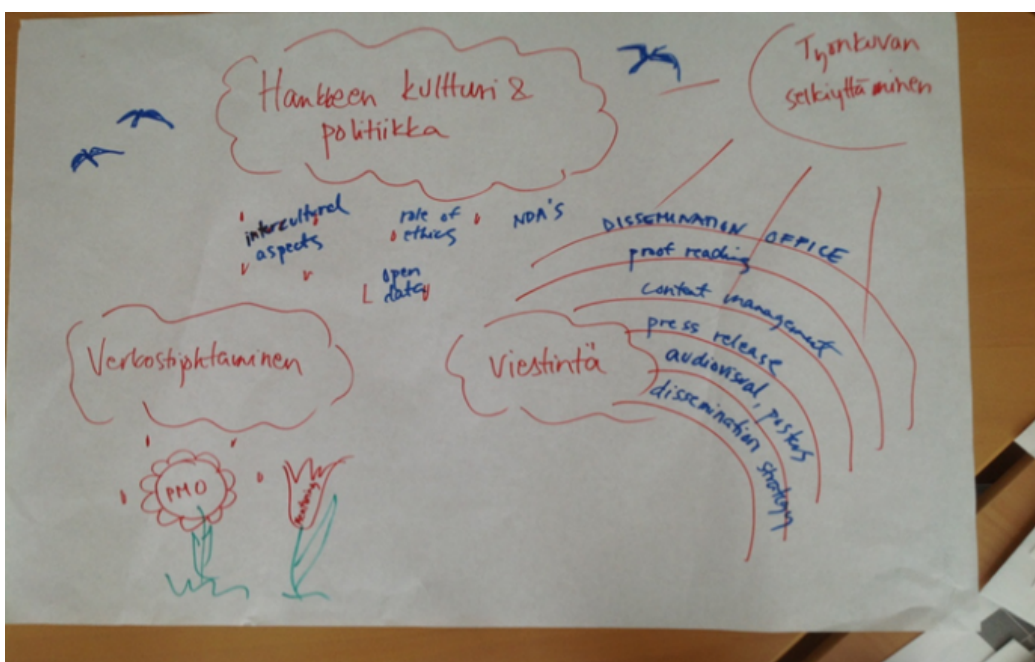 Hankkeen kultturi &
politiikka
Työnkuvan
selkiyttäminen
intercultural
aspects
role of
ethics
NDA'S
open
data
DISSEMINATION OFFICE
proof reading
content management
press release
audiovisual, posters
dissemination strategy
Verkostojohtaminen
Viestintä
PMO
Mentoring